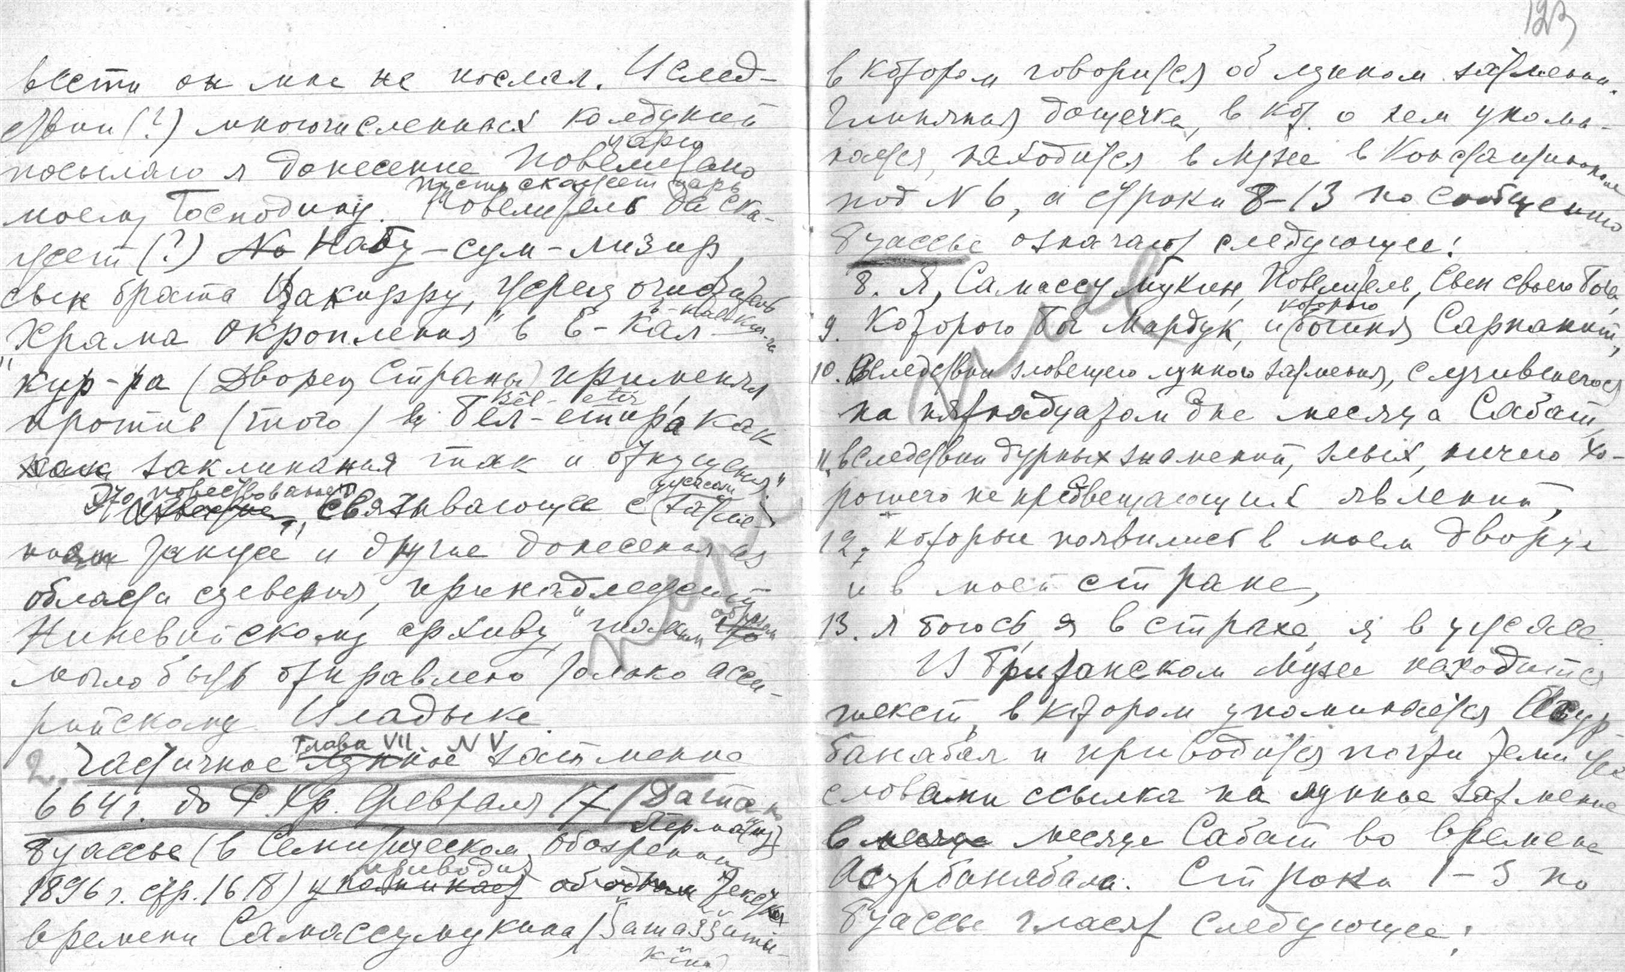 вести он мне не послал. Вслед-
ствии (?) многочисленных колдуний
царю
посылаю я донесение
моему Господину.
пусть скажет царь
Повелитель да ска-
жет (?) Набу-сум-лизир,
сын брата Закирру, жрец очиститель
храма окропления в Е-кал-
кур-ра (Дворец Страны) применял
против (того) Бел-етира как
заклинания так и отпущения"
Это повествование, связывающее с
и другие донесения из
области суеверия, принадлежит
Ниневийскому архиву, таким образом
могло быть отправлено только асси-
рийскому Владыке.
Глава VII. N V
2. Частичное лунное затмение
664 г. до Р. Хр. февраля 17 (Дата
Буассье (в Семитическом Обозрении
приводит
1896 г. стр. 168) упоминает об одном
времени Самассумукина (Šamaššumu-
kin)
123
в котором говорится об лунном затмении.
Глиняная дощечка, в кот. о нем упоми-
нается, находится в Музее в Константинополе
под N 6, а строки 8–13 по сообщению
Буассье означают следующее:
8. Я, Самассумукин, Повелитель, Сын своего бога,
которого
9. Которого бог Мардук, и богиня Сарпанит,
10. Вследствии зловещего лунного затмения, случившегося
на пятнадцатом дне месяца Сабат,
11. вследствии дурных знамений, злых, ничего хо-
рошего не предвещающих явлений,
12. Которые появились в моем дворце
и в моей стране,
13. Я боюсь, я в страхе, я в ужасе.
В Британском Музее находится
текст, в котором упоминается Асур-
банабал и приводится почти теми же
словами ссылка на лунное затмение
в месяце Сабат во времена
Асурбанабала. Строки 1–5 по
Буассье гласят следующее: